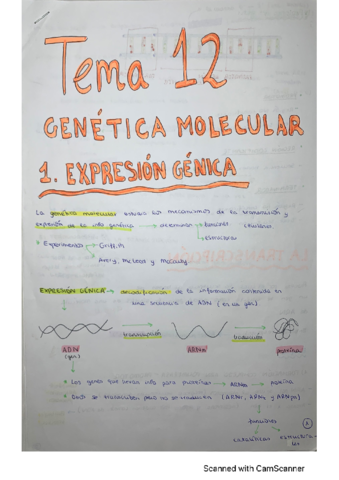 Tema 12
GENÉTICA MOLECULAR
1. EXPRESIÓN GÉNICA
La genética molecular estudia los mecanismos de la transmisión y
expresión de la info genética → determinar funciones celulares
estructuras
* Experimentos Griffith
Avery, McLeod y McCarty
EXPRESIÓN GÉNICA → decodificación de la información contenida en
una secuencia de ADN (es un gen)
transcripción
traducción
ADN
(gen)
ARNm
proteína
* Los genes que llevan info para proteínas → ARNm → Proteína
transcriben pero no se traducen (ARNt, ARNr y ARNpn)
funciones
catalíticas
Scanned with CamScanner